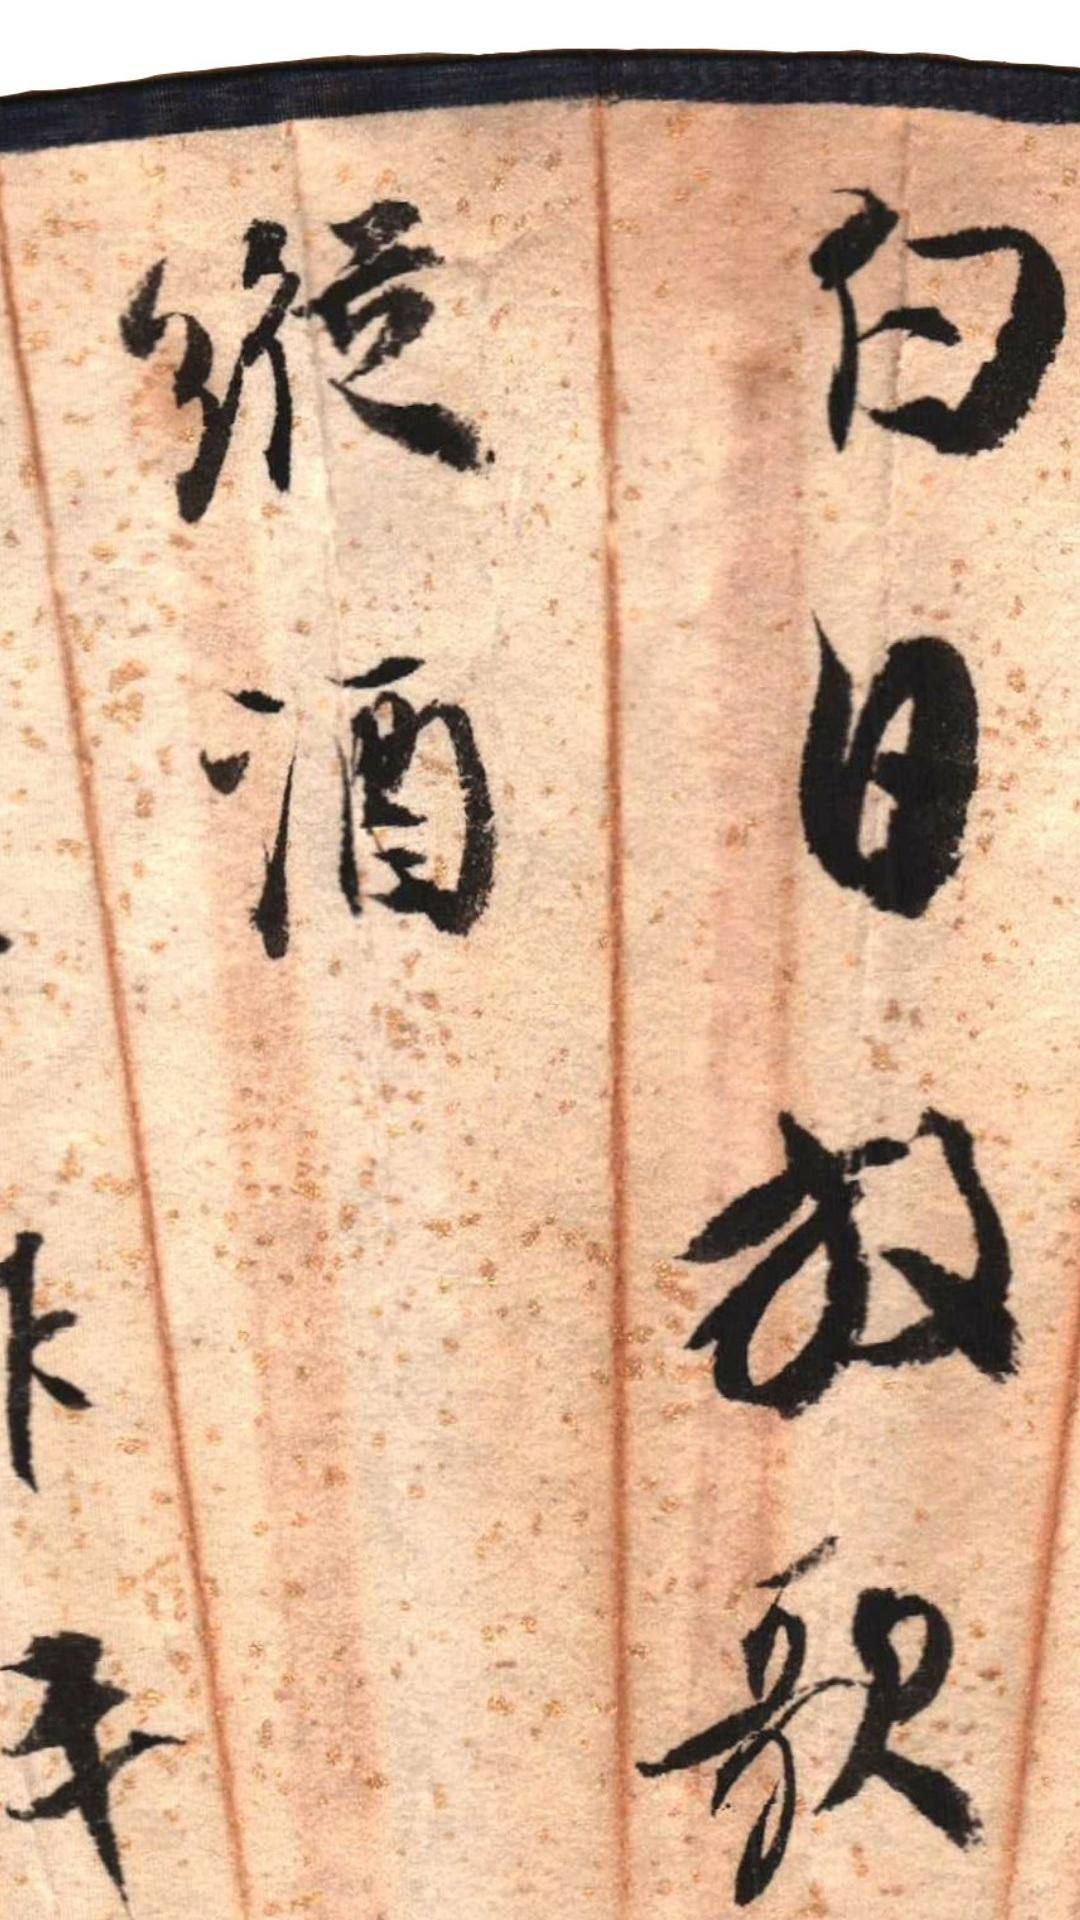 白日放歌
縱酒